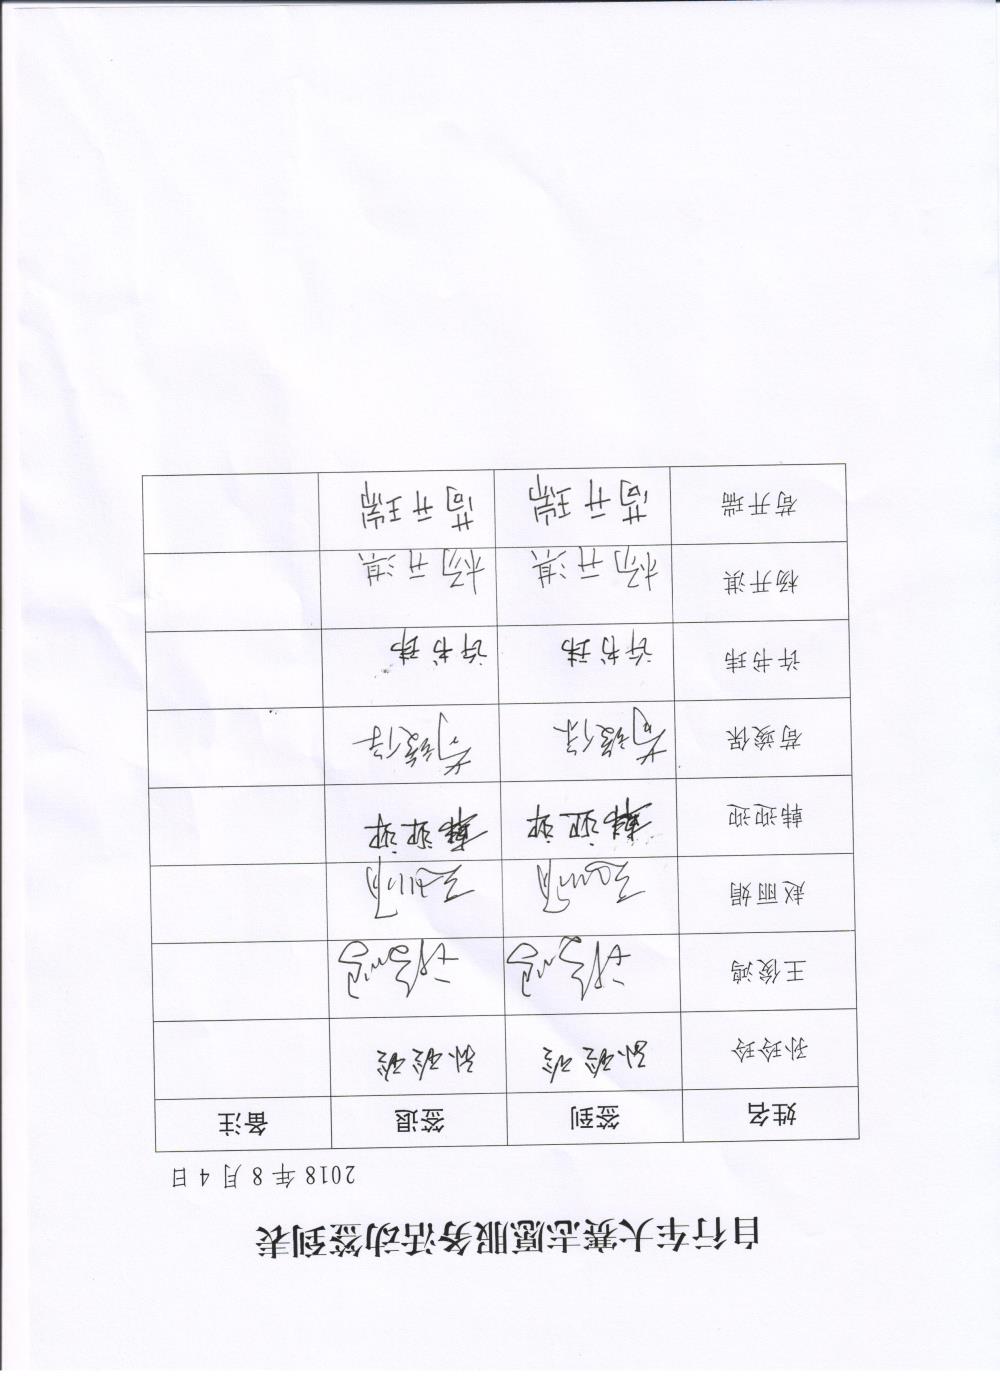 自行车大赛志愿服务活动签到表
2018 年 8 月 4 日
姓名 签到 签退 备注
孙玲玲 孙玲玲 孙玲玲
王俊鸿 王俊鸿 王俊鸿
赵丽娟 赵丽娟 赵丽娟
韩迎迎 韩迎迎 韩迎迎
苟竣保 苟竣保 苟竣保
许书玮 许书玮 许书玮
杨开淇 杨开淇 杨开淇
苟开瑞 苟开瑞 苟开瑞